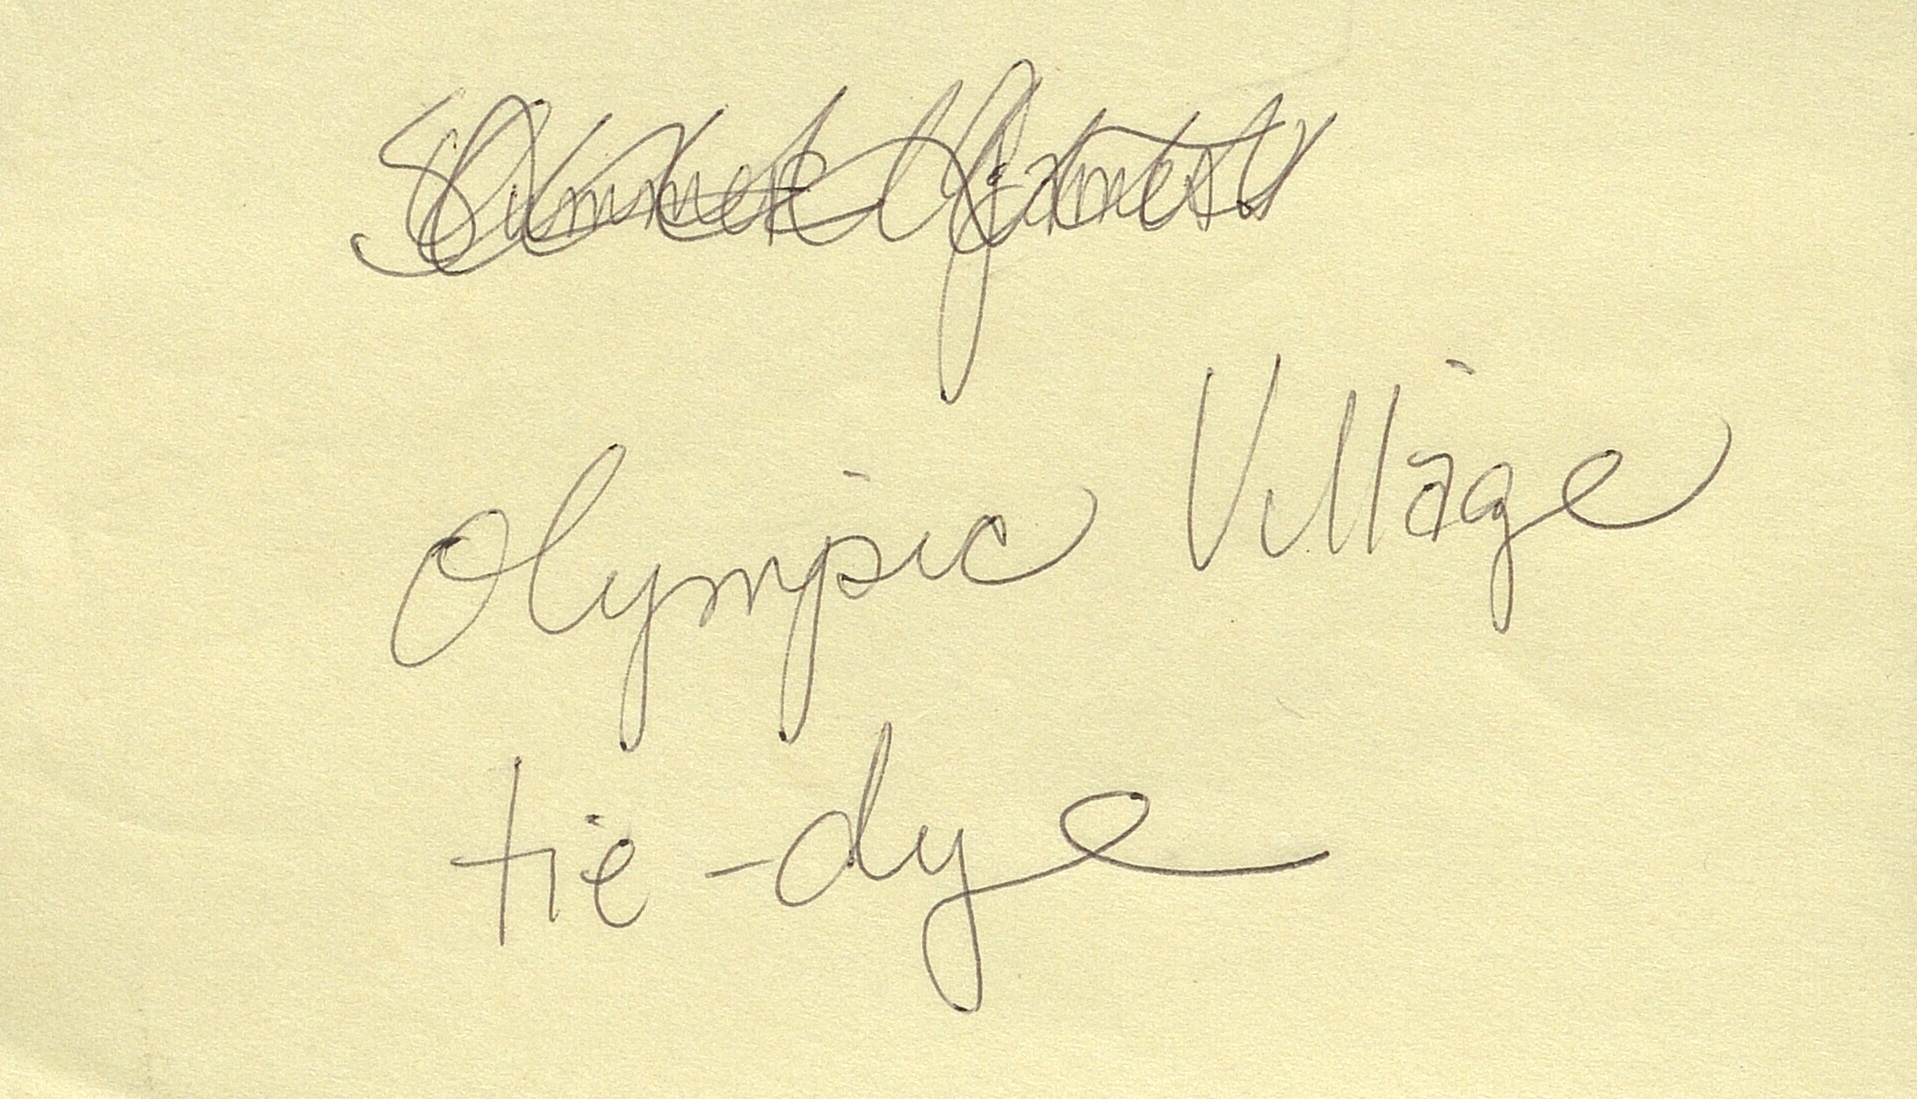 Summer Games
Olympic Village
tie-dye